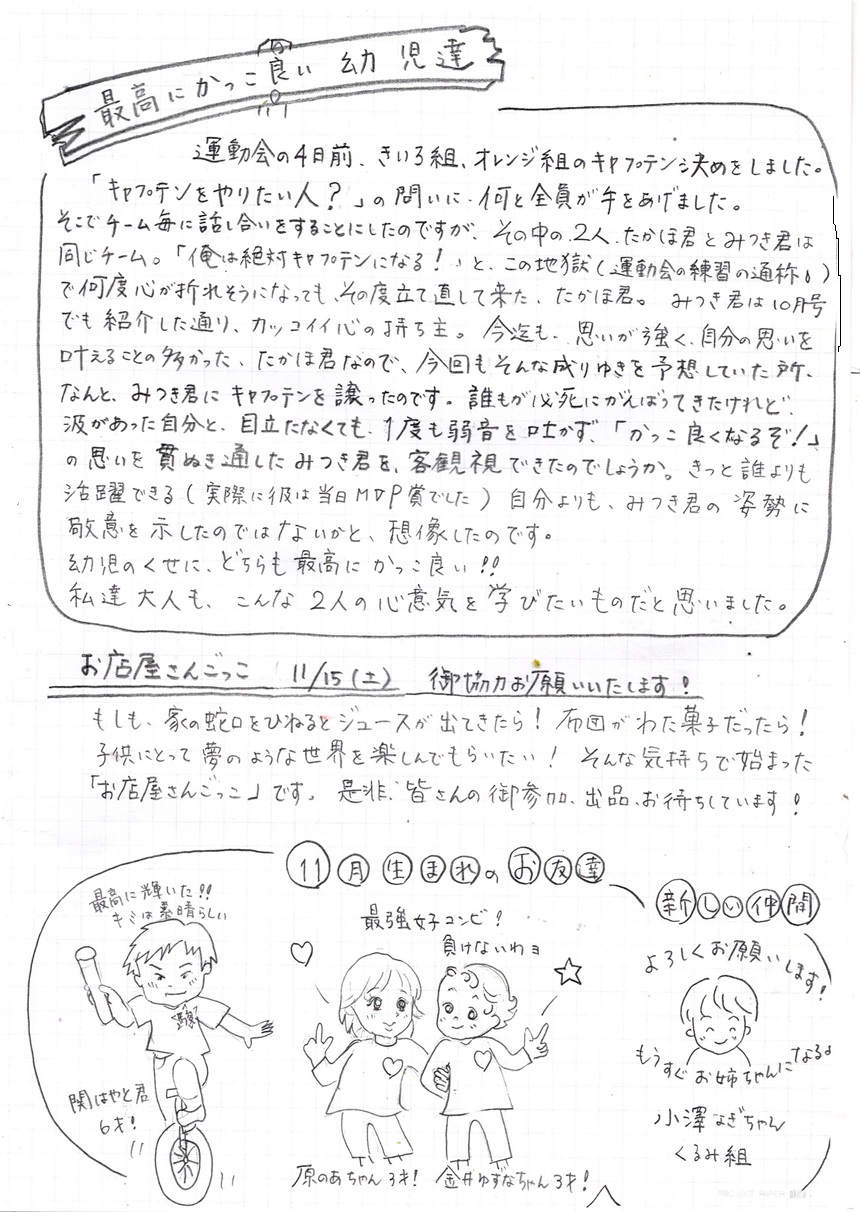 最高にかっこ良い 幼児達
運動会の4日前、きいろ組、オレンジ組のキャプテン決めをしました。
「キャプテンをやりたい人?」の問いに、何と全員が手をあげました。
そこでチーム毎に話し合いをすることにしたのですが、その中の2人、たかほ君とみつき君は
同じチーム。「俺は絶対キャプテンになる!」と、この地獄(運動会の練習の通称。)
で何度心が折れそうになっても、その度立て直して来た、たかほ君。みつき君は10月号
でも紹介した通り、カッコイイ心の持ち主。今迄も、思いが強く、自分の思いを
叶えることの多かった、たかほ君なので、今回もそんな成りゆきを予想していた所、
なんと、みつき君にキャプテンを譲ったのです。誰もが必死にがんばってきたけれど、
波があった自分と、目立たなくても、1度も弱音を吐かず、「かっこ良くなるぞ!」
の思いを貫ぬき通したみつき君を、客観視できたのでしょうか。きっと誰よりも
活躍できる(実際に彼は当日MVP賞でした)自分よりも、みつき君の姿勢に
敬意を示したのではないかと、想像したのです。
幼児のくせに、どちらも最高にかっこ良い!!
私達大人も、こんな2人の心意気を学びたいものだと思いました。
お店屋さんごっこ 11/15(土) 御協力お願いいたします!
もしも、家の蛇口をひねるとジュースが出てきたら!布団がわた菓子だったら!
子供にとって夢のような世界を楽しんでもらいたい!そんな気持ちで始まった
「お店屋さんごっこ」です。是非、皆さんの御参加、出品、お待ちしています!
11月生まれのお友達
最高に輝いた!!
キミは素晴らしい
関はやと君
6才!
最強女子コンビ!
負けないわョ
原のあちゃん3才!
金井ゆずなちゃん3才!
新しい仲間
よろしくお願いします!
もうすぐお姉ちゃんになる。
小澤なぎちゃん
くるみ組
PROJECT PAPER